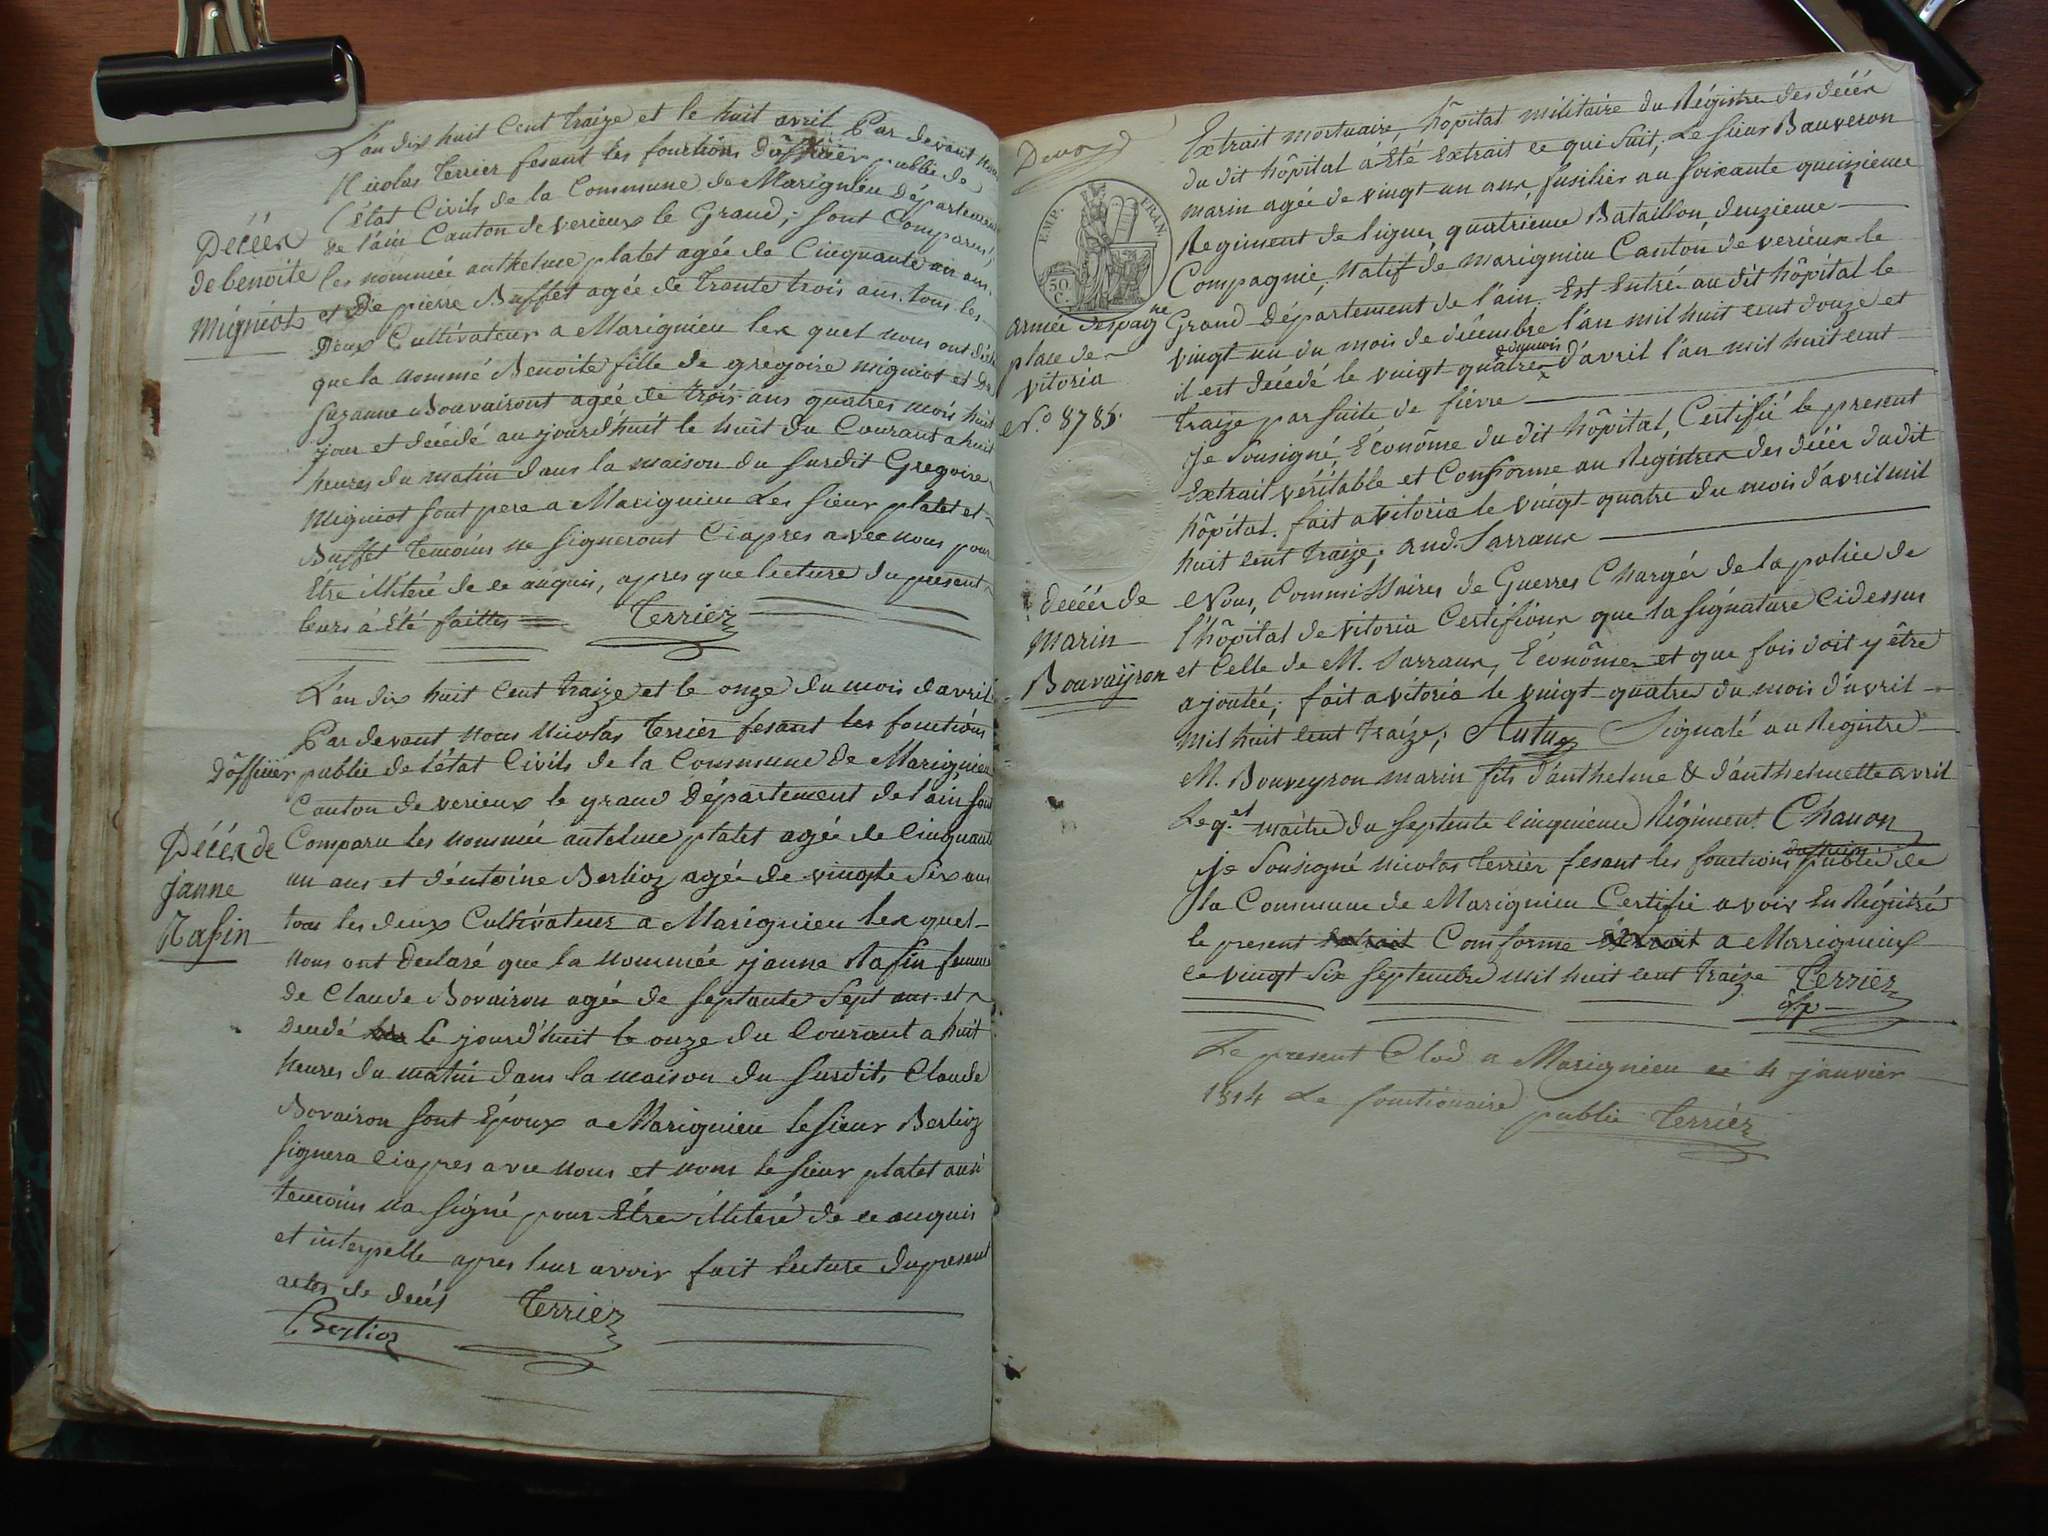 L'an dix huit Cent traize et le huit avril Par devant nous
Nicolas Terrier fesant les fonctions D'officier public de
l'état Civils de la Commune de Marignieu Département
de l'ain Canton de verieux le Grand; sont Comparus,
les nommée anthelme platet agée de Cinquante un ans.
et De pierre Buffet agée de trante trois ans. tous les
Deux Cultivateur a Marignieu lex quel nous ont déclaré
que la nommé Benoite fille de gregoire migniot et de
suzanne Bouvairont agée de trois ans quatres mois huit
jour et décédé au jourd'huit le huit du Courant a huit
heures du matin dans la maison du surdit Gregoire
Migniot sont pere a Marignieu Les sieur platet et
Buffet temoins ne signeront Ciapres avec nous pour
Etre illiteré de ce anquis, apres que lecture du present
leurs à été faittes
Terrier
Décéx
de benoite
Migniot
L'an dix huit Cent traize et le onze du mois d'avril
Par devant nous Nicolas Terrier fesant les fonctions
D'officier public de l'état Civils de la Commune de Marignieu
Canton de verieux le grand Département de l'ain sont
Comparu les nommée antelme platet agée de Cinquante
un ans et d'entoine Berlioz agée de vingte six ans
tous les deux Cultivateur a Marignieu lex quel
nous ont Declaré que la nommée janne Rafin femme
de Claude Bovairon agée de septante sept ans et
Decedé le jourd'huit le onze du Courant a huit
heures du matin dans la maison du surdits Claude
Bovairon sont Epoux a Marignieu le sieur Berlioz
signera Ciapres avec nous et nom le sieur platet ausi
temoins na signé pour Etre illiteré de ce anquis
et interpelle apres leur avoir fait lecture du present
actes de décés
Terrier
Berlioz
Décéx de
janne
Rafin
Extrait mortuaire, hôpital militaire du Régistre des décéx
du dit hôpital à Eté Extrait ce qui suit; Le sieur Bauveron
marin agée de vingt un anx, fusilier au soixante quinzieme
Regiment de lignes quatrieme Bataillon deuzieme
Compagnie, Natif de marignieu Canton de verieux le
Grand Département de l'ain. Est Entré au dit hôpital le
vingt un du mois de décembre l'an mil huit cent douze et
il est décédé le vingt quatre du mois d'avril l'an mil huit cent
traize par suite de fiévre
je sousigné, Économe du dit hôpital, Certifié le present
Extrait véritable et Conforme au Régistres des décéx du dit
hôpital. fait a vitoria le vingt quatre du mois d'avril mil
huit cent traize; and. Sarraux
Nous, Commissaires de Guerres Chargéx de la police de
l'hôpital de vitoria Certifioux que la signature Cidessus
et Celle de M. Sarraux, Économe et que fois doit y être
ajoutée; fait a vitoria le vingt quatre du mois d'avril
mil huit cent traize; Signalé au Régistre
M. Bouveyron marin fils d'anthelme & d'anthelmette avril
Le q.et maitre du septente cinquieme Régiment. Chanon
je sousigné nicolas terrier fesant les fonctions d'officier public de
la Commune de Marignieu Certifie avoir En Régitré
le present Comforme a Marignieux
ce vingt six septembre mil huit cent traize Terrier
Le present Clod a Marignieu ce 4 janvier
1814 Le fonctionaire public Terrier
EMP. FRAN.
50 C.
armée despagne
place de
vitoria
N.o 8785.
décéx de
marin
Bouvaÿron